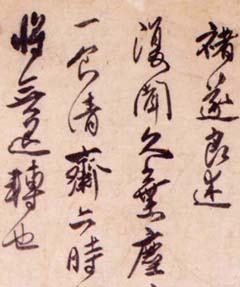 褚遂良述
復聞久棄塵
一食清齋六時
將無退轉也